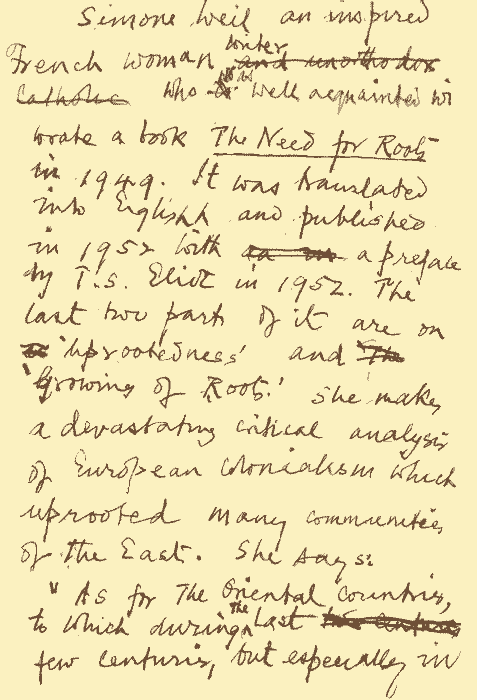 Simone Weil an inspired
French woman writer and unorthodox
Catholic who was well acquainted wi
wrote a book The Need for Roots
in 1949. It was translated
into English and published
in 1952 with a preface
by T.S. Eliot in 1952. The
last two parts of it are on
'uprootedness' and The
'Growing of Roots.' She makes
a devastating critical analysis
of European colonialism which
uprooted many communities
of the East. She says:
"As for the Oriental countries,
to which during the last two centuries
few centuries, but especially in